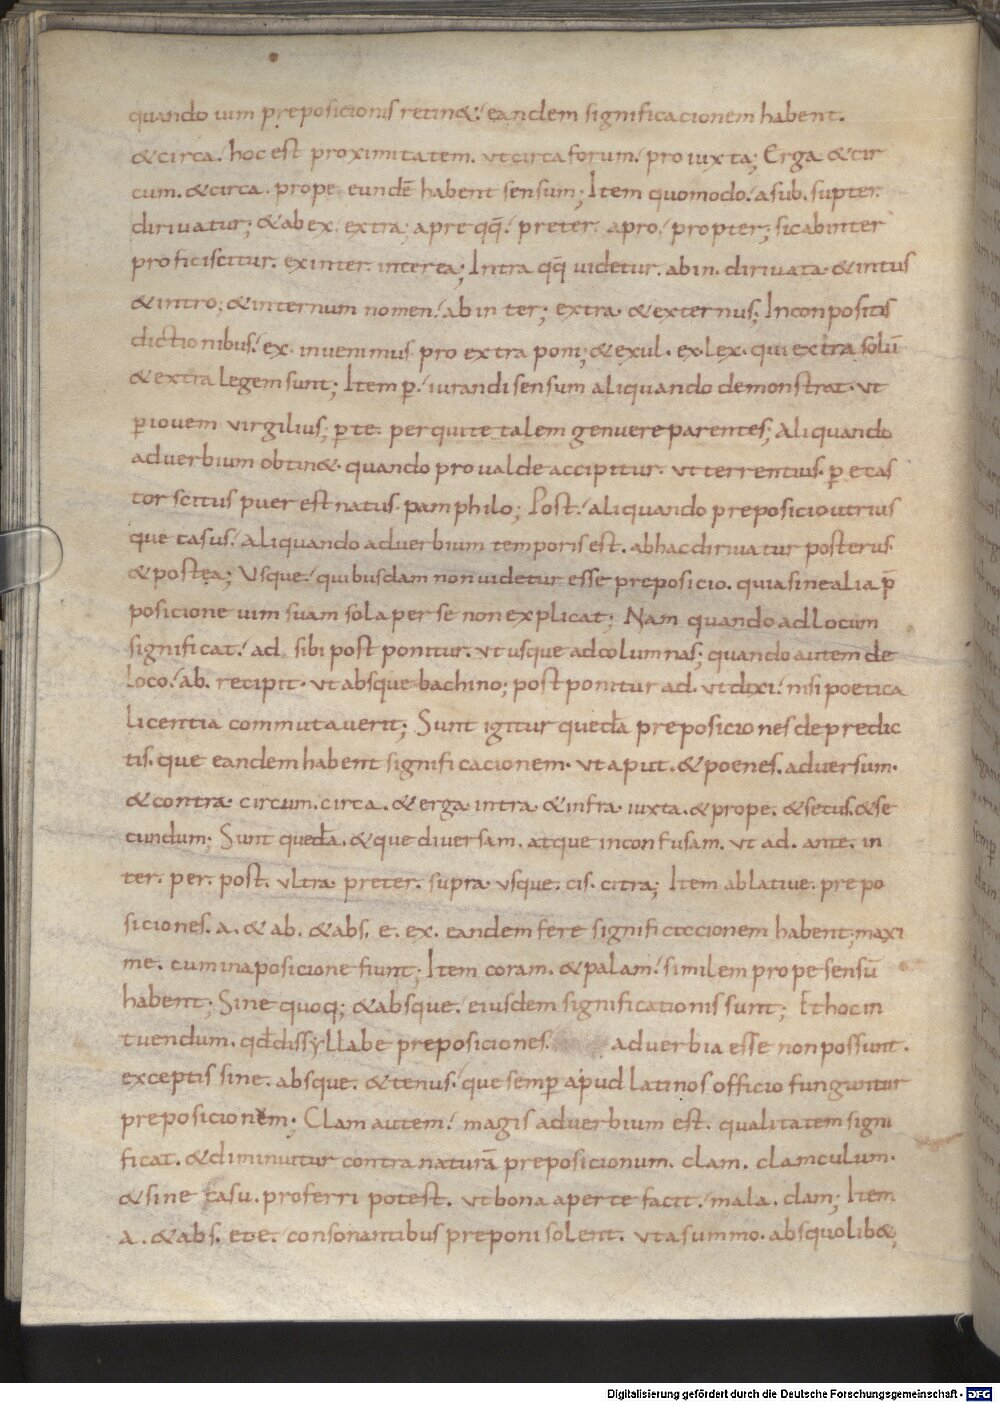 quando uim preposicionis retin&; eandem significacionem habent.
& circa. hoc est proximitatem. ut circa forum. pro iuxta; Erga & cir
cum. & circa. prope eundē habent sensum; Item quomodo. a sub. supter.
diriuatur; & ab ex. extra; a pre qq̄. preter. a pro. propter; sic ab inter
proficiscitur. ex inter. interea; Intra qq̄ uidetur. ab in. diriuata. & intus
& intro; & internum nomen. ab inter; extra. & externus; In conpositis
dictionibus. ex. inuenimus pro extra poni; & exul. ex lex. qui extra solū
& extra legem sunt; Item p̱. iurandi sensum aliquando demonstrat. ut
p̱ iouem virgilius; p̱ te. per qui te talem genuere parentes; Aliquando
aduerbium obtin&. quando pro ualde accipitur. ut terrentius. p̱ ecas
tor scitus puer est natus. pamphilo; Post. aliquando preposicio utrius
que casus. Aliquando aduerbium temporis est. ab hac diriuatur posterus.
& postea; Usque. quibusdam non uidetur esse preposicio. quia sine alia p̄
posicione uim suam sola per se non explicat; Nam quando ad locum
significat. ad sibi postponitur. ut usque ad columnas; quando autem de
loco. ab. recipit. ut absque bachino; postponitur ad. ut dixi. nisi poetica
licentia commutauerit; Sunt igitur quedā preposiciones de predic
tis. que eandem habent significacionem. ut aput. & poenes. aduersum.
& contra. circum. circa. & erga. intra. & infra. iuxta. & prope. & secus. & se
cundum; Sunt quedā. & que diuersam. atque inconfusam. ut ad. ante. in
ter. per. post. ultra. preter. supra. usque. cis. citra; Item ablatiue. prepo
siciones. a. & ab. & abs. e. ex. eandem fere significccionem habent; maxi
me. cum in aposicione fiunt; Item coram. & palam. similem prope sensū
habent; Sine quoq; & absque. eiusdem significationis sunt; Et hoc in
tuendum. qđ dissyllabe preposiciones. aduerbia esse non possunt.
exceptis sine. absque. & tenus. que semp̱ apud latinos officio funguntur
preposicionem. Clam autem. magis aduerbium est. qualitatem signi
ficat. & diminuitur contra naturā preposicionum. clam. clamculum.
& sine casu. proferri potest. ut bona aperte facit. mala. clam; Item
a. & abs. et e. consonantibus preponi solent. ut a summo. absquolib&;
Digitalisierung gefördert durch die Deutsche Forschungsgemeinschaft - DFG